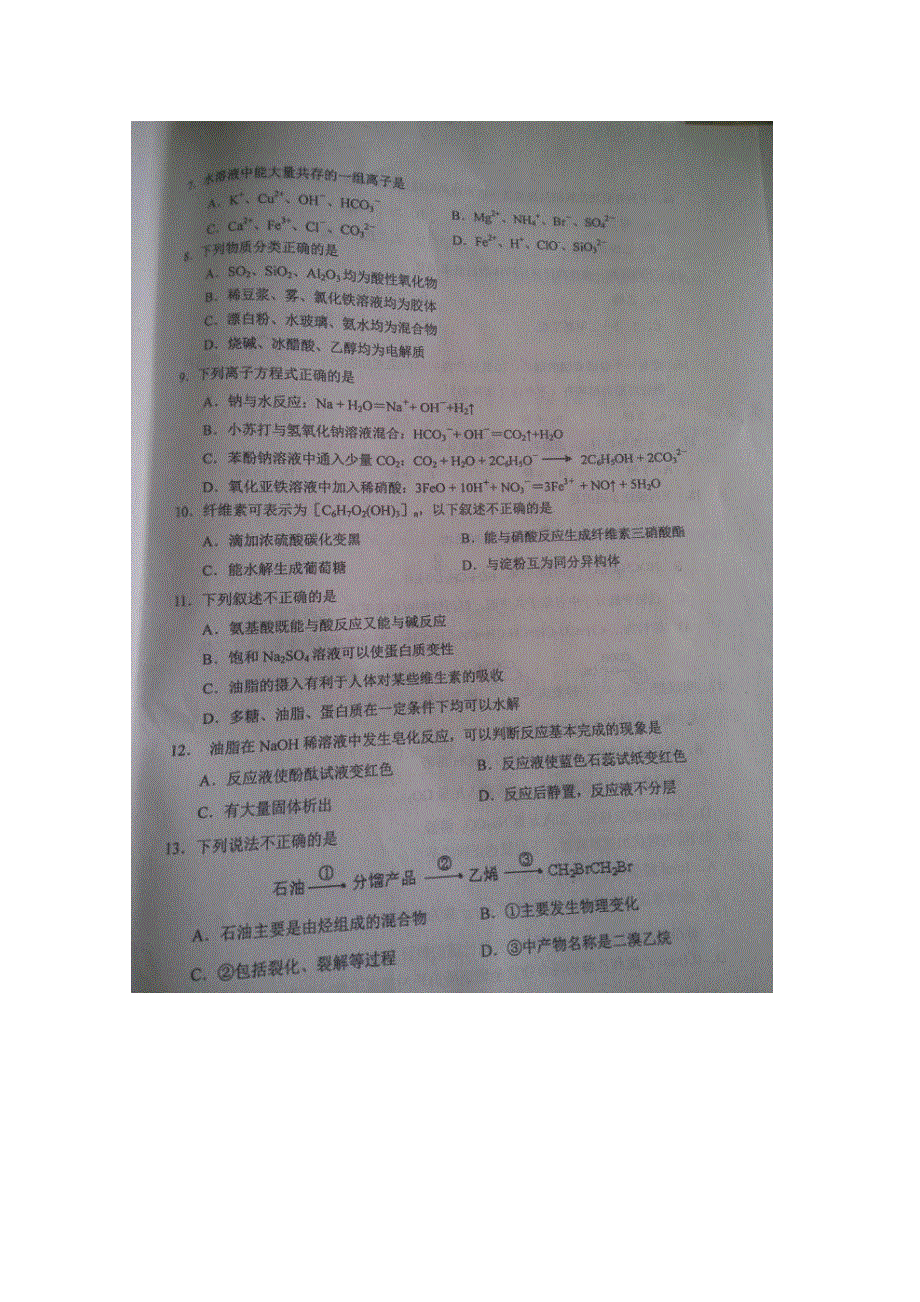 7. 水溶液中能大量共存的一组离子是
A. K⁺、Cu²⁺、OH⁻、HCO₃⁻ B. Mg²⁺、NH₄⁺、Br⁻、SO₄²⁻
C. Ca²⁺、Fe³⁺、Cl⁻、CO₃²⁻ D. Fe²⁺、H⁺、ClO⁻、SiO₃²⁻
8. 下列物质分类正确的是
A. SO₂、SiO₂、Al₂O₃均为酸性氧化物
B. 稀豆浆、雾、氯化铁溶液均为胶体
C. 漂白粉、水玻璃、氨水均为混合物
D. 烧碱、冰醋酸、乙醇均为电解质
9. 下列离子方程式正确的是
A. 钠与水反应：Na + H₂O=Na⁺+ OH⁻+H₂↑
B. 小苏打与氢氧化钠溶液混合：HCO₃⁻+ OH⁻=CO₂↑+H₂O
C. 苯酚钠溶液中通入少量 CO₂：CO₂ + H₂O + 2C₆H₅O⁻ ⟶ 2C₆H₅OH + 2CO₃²⁻
D. 氧化亚铁溶液中加入稀硝酸：3FeO + 10H⁺+ NO₃⁻=3Fe³⁺ + NO↑ + 5H₂O
10. 纤维素可表示为［C₆H₇O₂(OH)₃］ₙ，以下叙述不正确的是
A. 滴加浓硫酸碳化变黑 B. 能与硝酸反应生成纤维素三硝酸酯
C. 能水解生成葡萄糖 D. 与淀粉互为同分异构体
11. 下列叙述不正确的是
A. 氨基酸既能与酸反应又能与碱反应
B. 饱和 Na₂SO₄ 溶液可以使蛋白质变性
C. 油脂的摄入有利于人体对某些维生素的吸收
D. 多糖、油脂、蛋白质在一定条件下均可以水解
12. 油脂在 NaOH 稀溶液中发生皂化反应，可以判断反应基本完成的现象是
A. 反应液使酚酞试液变红色 B. 反应液使蓝色石蕊试纸变红色
C. 有大量固体析出 D. 反应后静置，反应液不分层
13. 下列说法不正确的是
石油 ①⟶ 分馏产品 ②⟶ 乙烯 ③⟶ CH₂BrCH₂Br
A. 石油主要是由烃组成的混合物 B. ①主要发生物理变化
C. ②包括裂化、裂解等过程 D. ③中产物名称是二溴乙烷